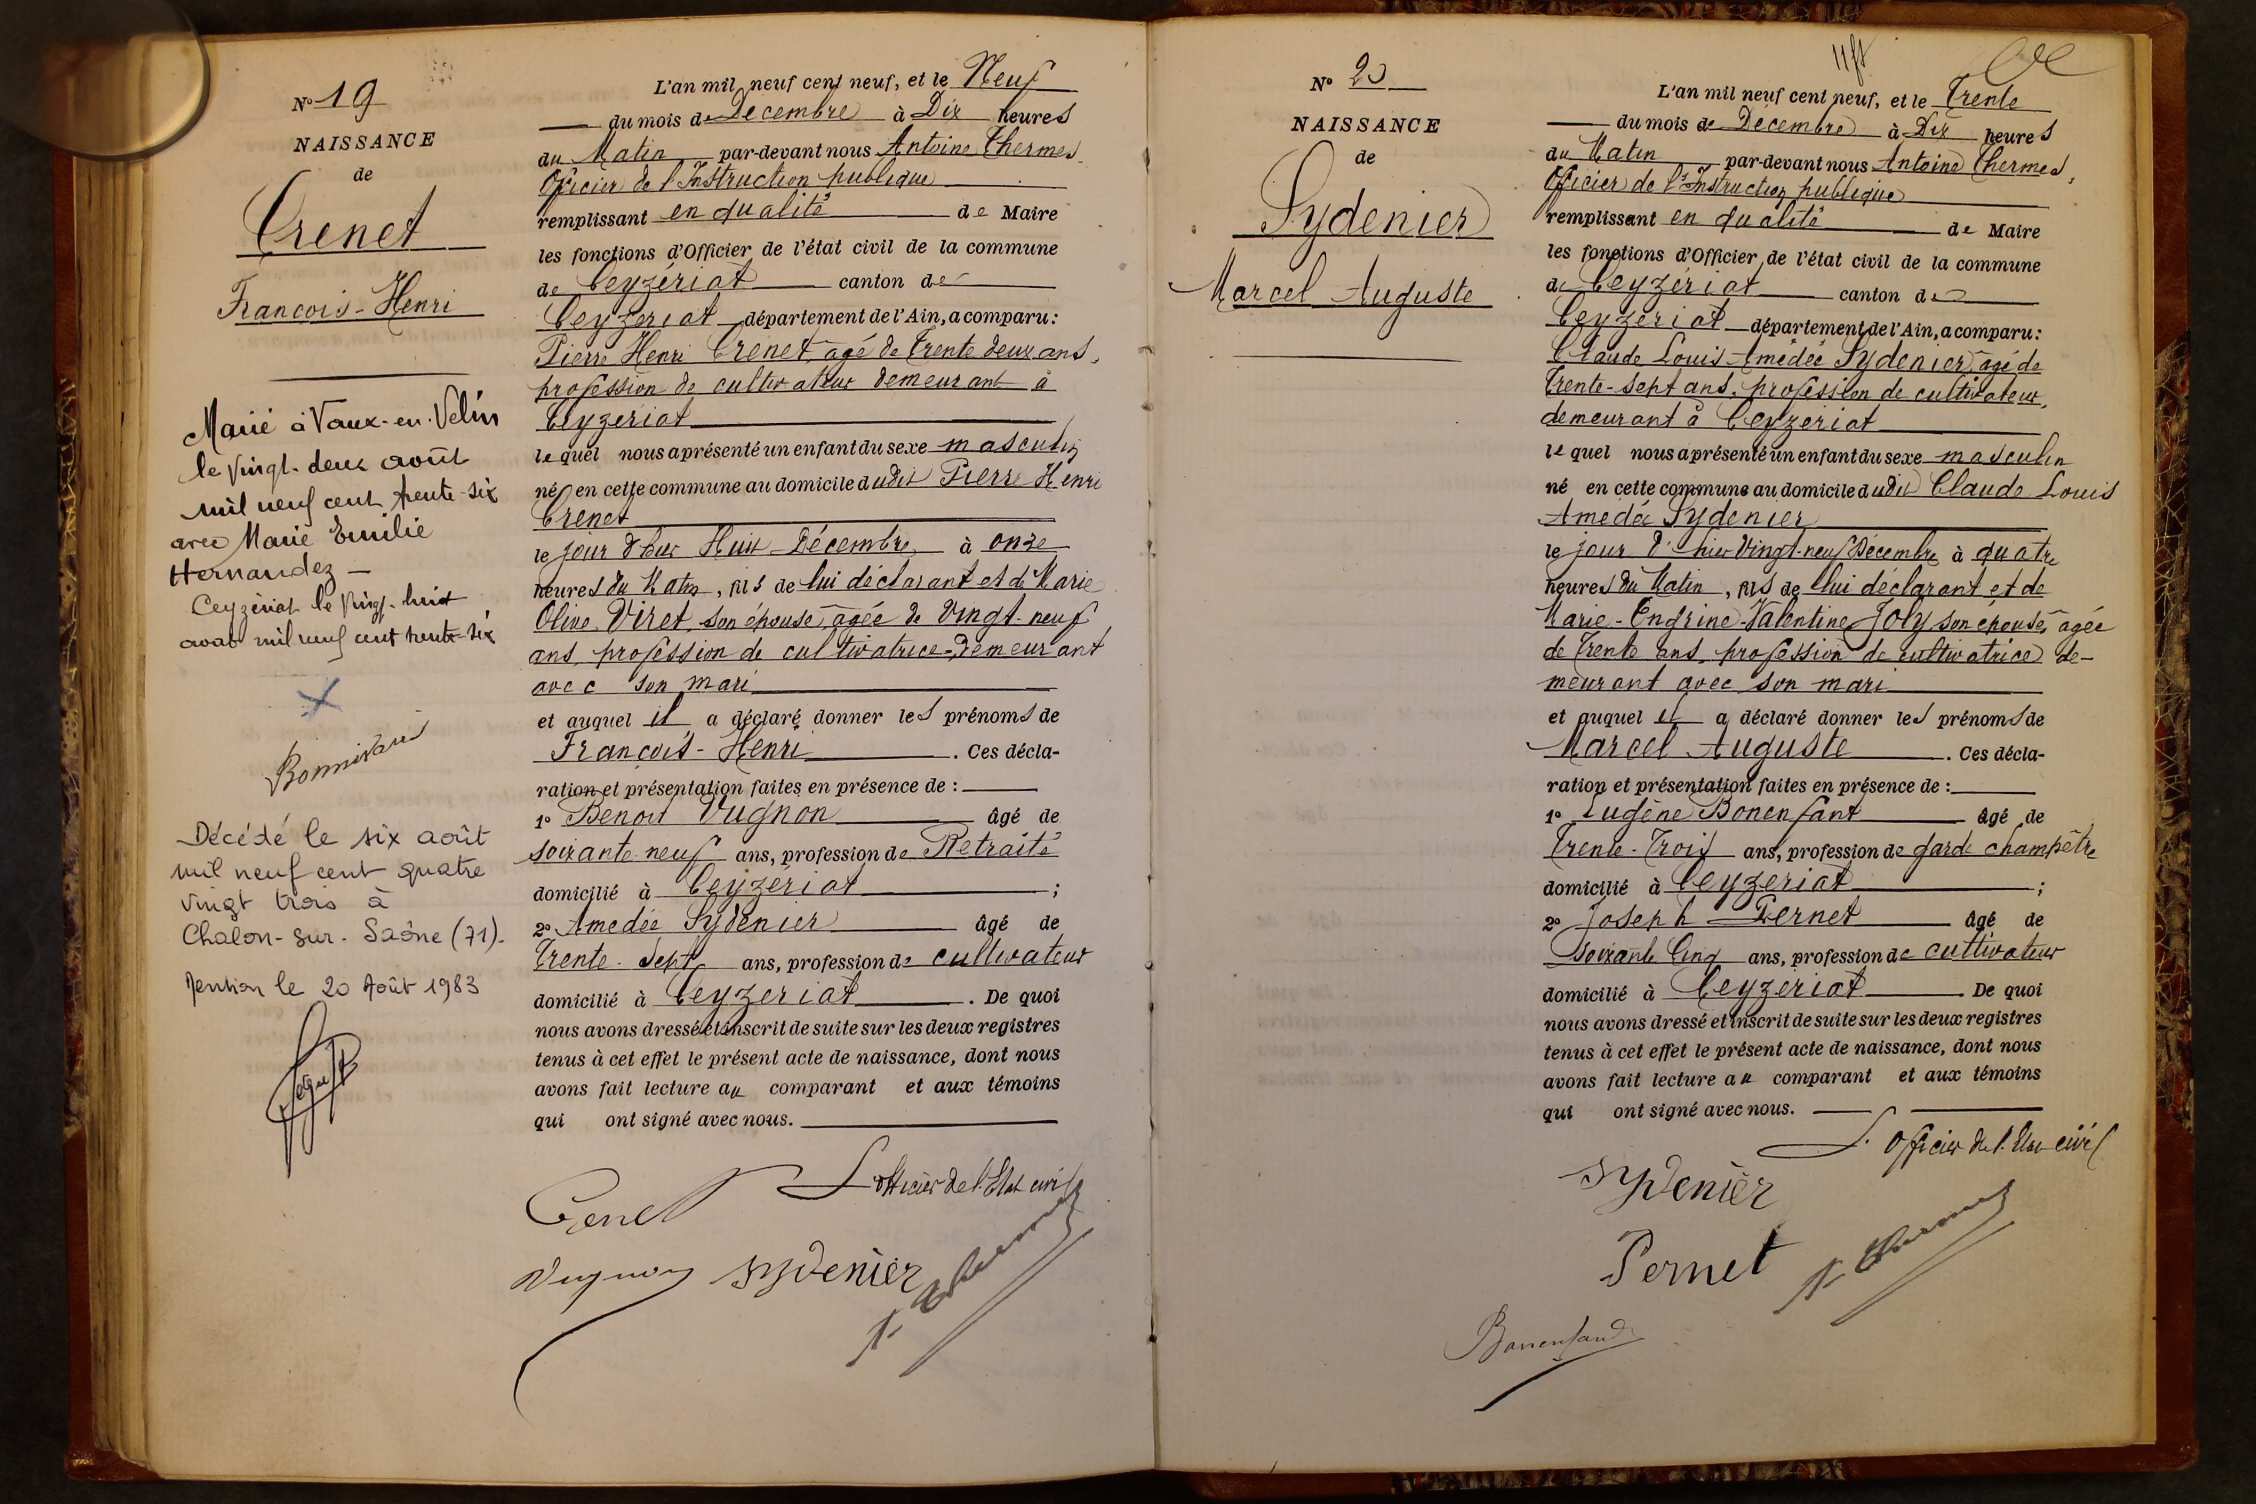 Nº 19
NAISSANCE
de
Crenet
Francois-Henri
Marié à Vaux-en-Velin
le vingt-deux août
mil neuf cent trente-six
avec Marie Emilie
Hernandez —
Ceyzériat le vingt-huit
août mil neuf cent trente-six
Décédé le six août
mil neuf cent quatre
vingt trois à
Chalon-sur-Saône (71).
Mention le 20 Août 1983
L'an mil neuf cent neuf, et le Neuf
du mois de Décembre à Dix heures
du Matin par-devant nous Antoine Thermes
Officier de l'Instruction publique
remplissant en qualité de Maire
les fonctions d'Officier de l'état civil de la commune
de Ceyzériat canton de
Ceyzeriat département de l'Ain, a comparu:
Pierre Henri Crenet, agé de trente deux ans,
profession de cultivateur demeurant à
Ceyzeriat
le quel nous a présenté un enfant du sexe masculin
né en cette commune au domicile dudit Pierre Henri
Crenet
le jour d'hier Huit Décembre à onze
heures du Matin, fils de lui déclarant et de Marie
Olive Viret, son épouse, agée de vingt-neuf
ans, profession de cultivatrice-Demeurant
avec son mari
et auquel il a déclaré donner les prénoms de
François-Henri. Ces décla-
ration et présentation faites en présence de :
1º Benoit Vugnon âgé de
soixante-neuf ans, profession de Retraité
domicilié à Ceyzériat ;
2º Amedée Sydenier âgé de
Trente-Sept ans, profession de cultivateur
domicilié à Ceyzeriat. De quoi
nous avons dressé et inscrit de suite sur les deux registres
tenus à cet effet le présent acte de naissance, dont nous
avons fait lecture au comparant et aux témoins
qui ont signé avec nous.
L'officier de l'Etat civil
Crenet
Vugnon Sydenier
A. Thermes
Nº 20
NAISSANCE
de
Sydenier
Marcel Auguste
L'an mil neuf cent neuf, et le Trente
du mois de Décembre à Dix heures
du Matin par-devant nous Antoine Thermes,
Officier de l'Instruction publique
remplissant en qualité de Maire
les fonctions d'Officier de l'état civil de la commune
de Ceyzériat canton de
Ceyzériat département de l'Ain, a comparu:
Claude Louis-Amédée Sydenier, agé de
Trente-sept ans, profession de cultivateur,
demeurant à Ceyzeriat
le quel nous a présenté un enfant du sexe masculin
né en cette commune au domicile dudit Claude Louis
Amedée Sydenier
le jour d'hier Vingt-neuf Décembre à quatre
heures du Matin, fils de lui déclarant et de
Marie-Engrine-Valentine Joly son épouse, agée
de Trente ans, profession de cultivatrice de-
meurant avec son mari
et auquel il a déclaré donner les prénoms de
Marcel Auguste. Ces décla-
ration et présentation faites en présence de :
1º Eugène Bonenfant âgé de
Trente-Trois ans, profession de garde champêtre
domicilié à Ceyzeriat ;
2º Joseph Pernet âgé de
Soixante Cinq ans, profession de cultivateur
domicilié à Ceyzériat. De quoi
nous avons dressé et inscrit de suite sur les deux registres
tenus à cet effet le présent acte de naissance, dont nous
avons fait lecture au comparant et aux témoins
qui ont signé avec nous.
L'officier de l'Etat civil
Sydenier
Pernet
A. Thermes
Bonenfant